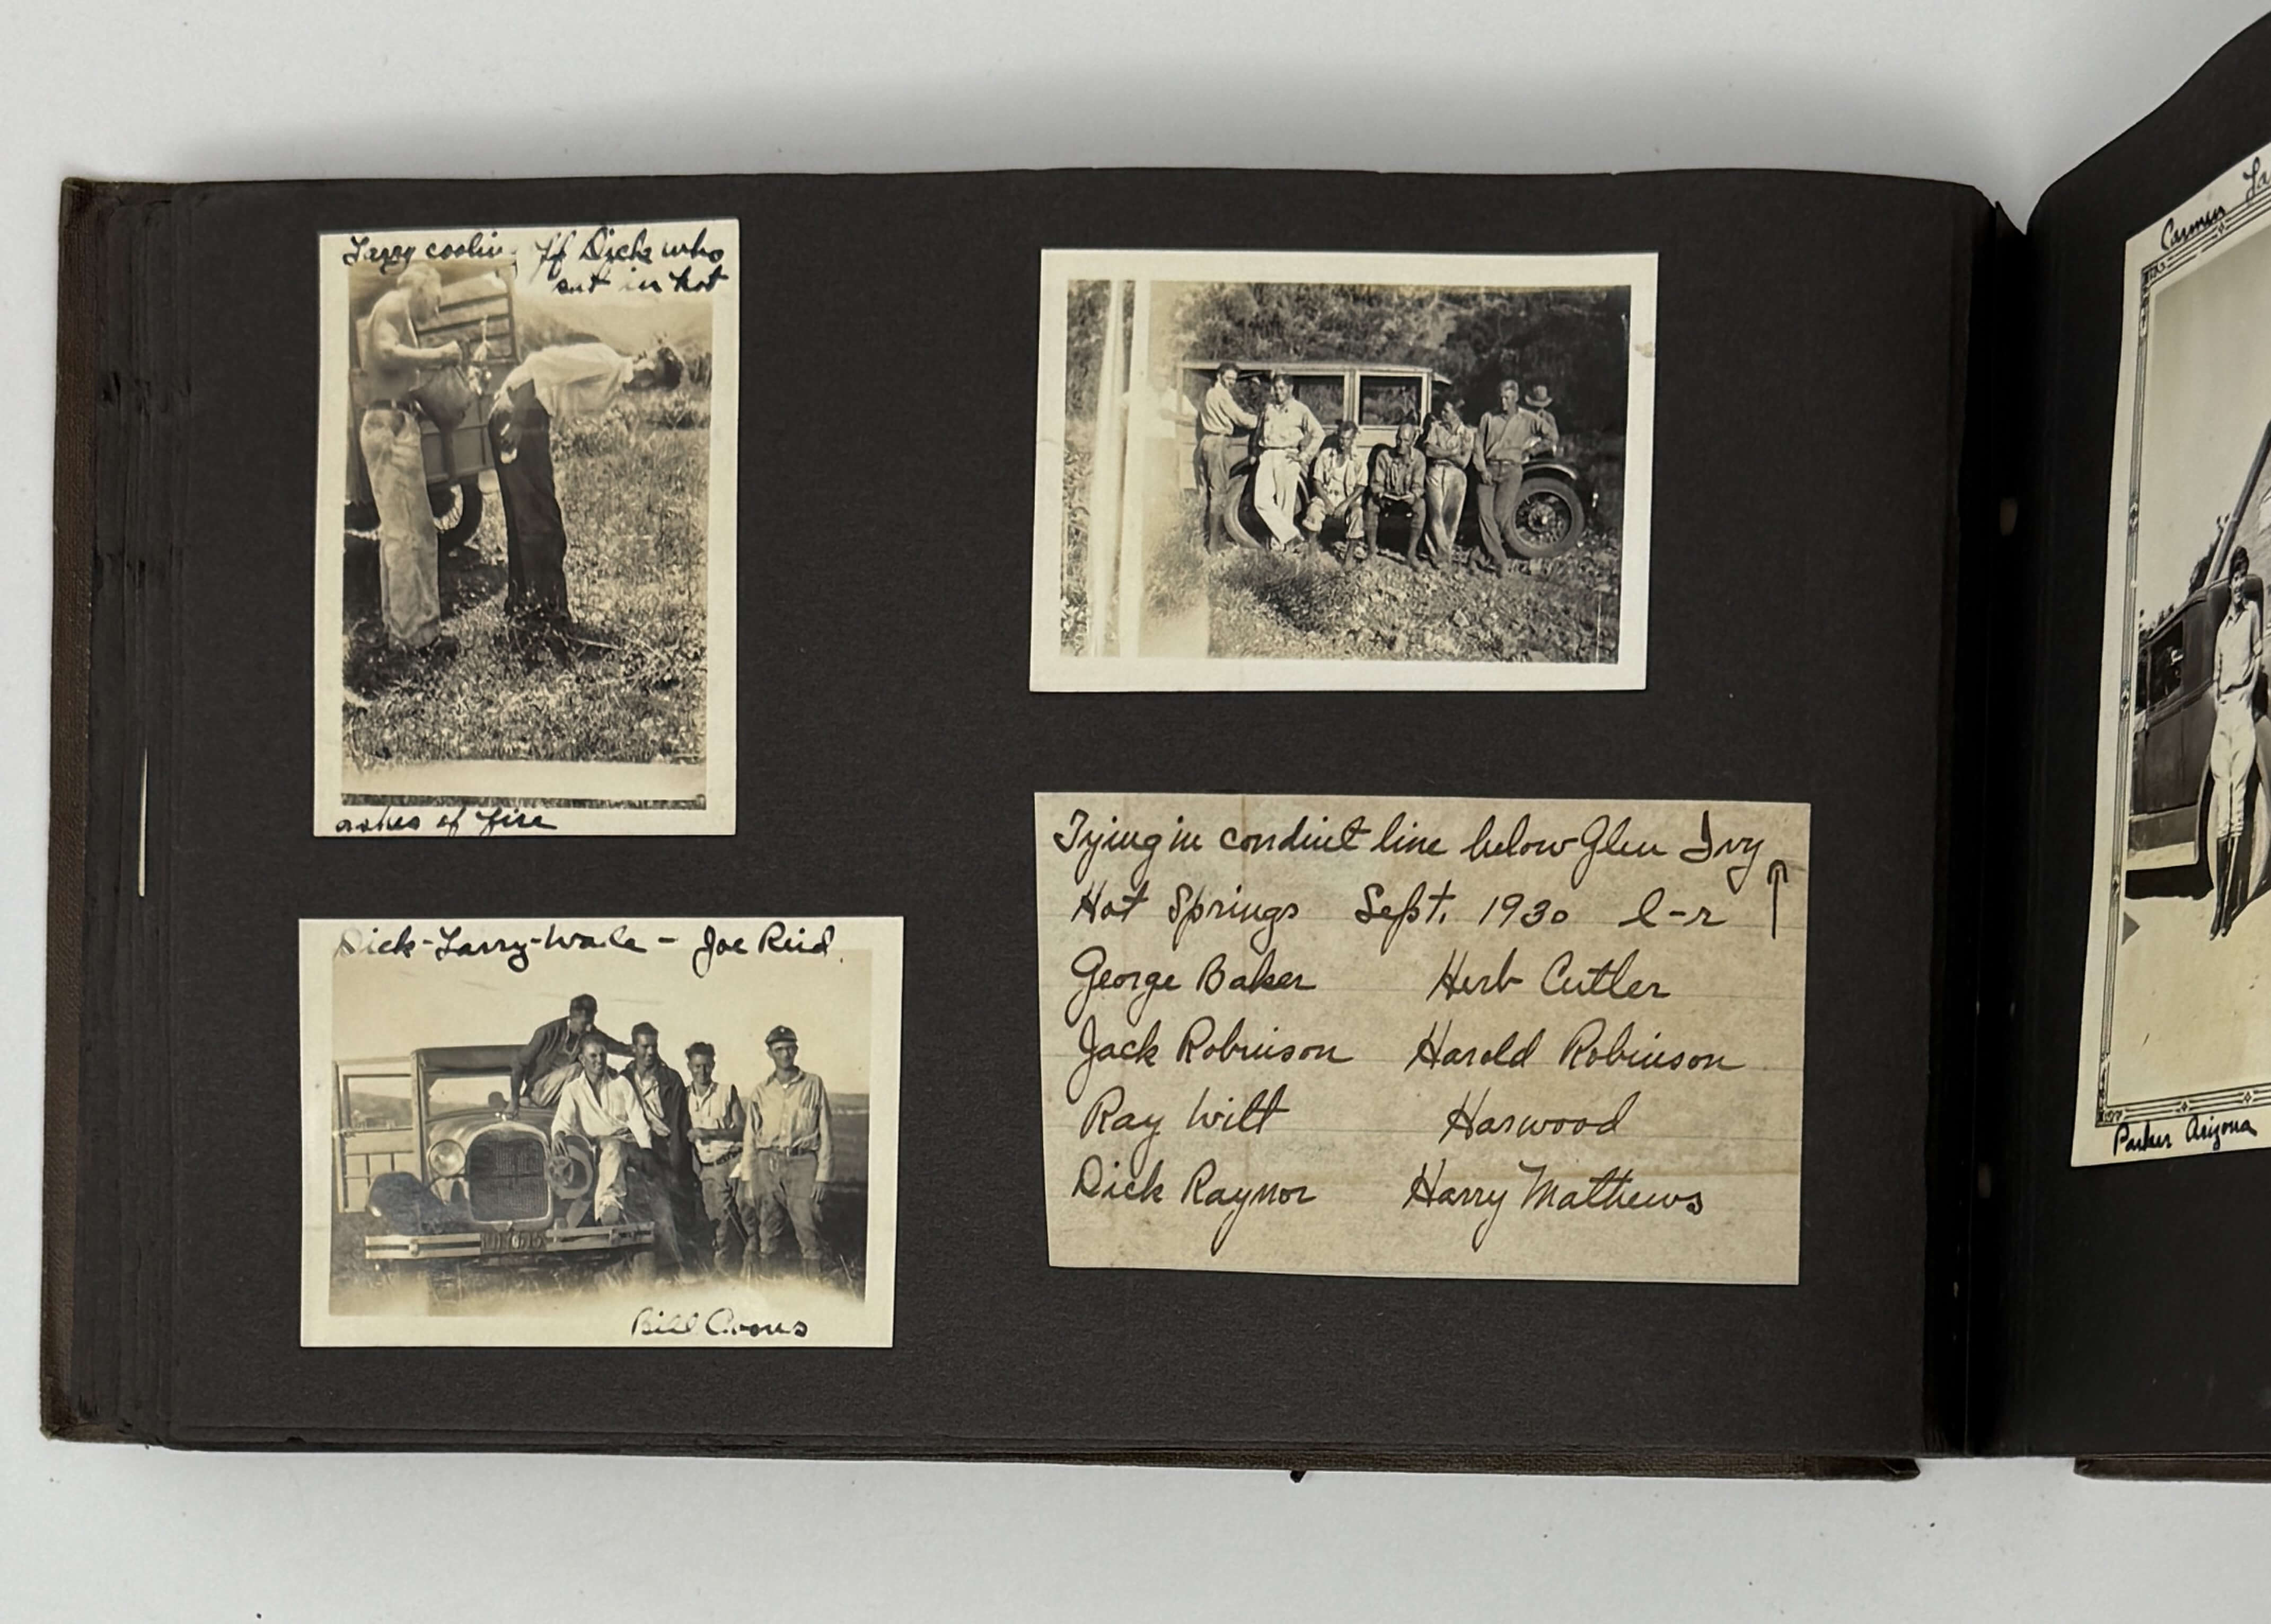 Larry cooling off Dick who
sat in hot
ashes of fire
Dick-Larry-Wade - Joe Reid.
Bill Coons
Tying in conduit line below Glen Ivy
Hot Springs Sept. 1930 l-r
George Baker Herb Cutler
Jack Robinson Harold Robinson
Ray Wilt Harwood
Dick Raynor Harry Mathews
Carmen
Parker Arizona